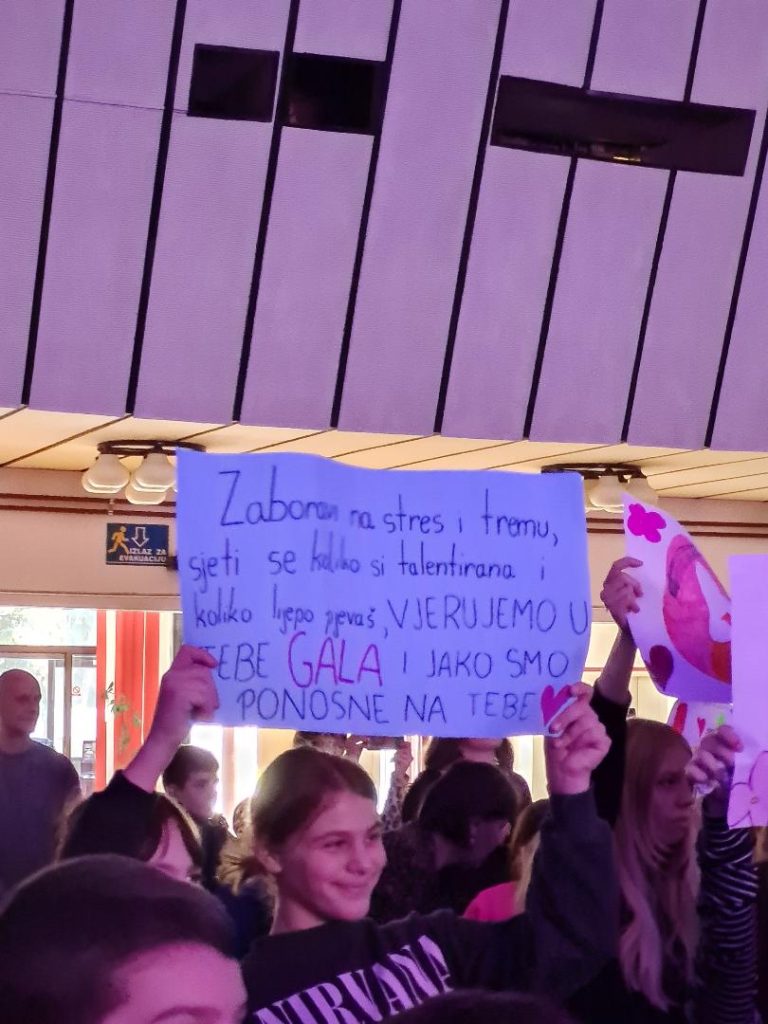 Zaboravi na stres i tremu,
sjeti se koliko si talentirana i
koliko lijepo pjevaš, VJERUJEMO U
TEBE GALA I JAKO SMO
PONOSNE NA TEBE
IZLAZ ZA
EVAKUACIJU
NIRVANA